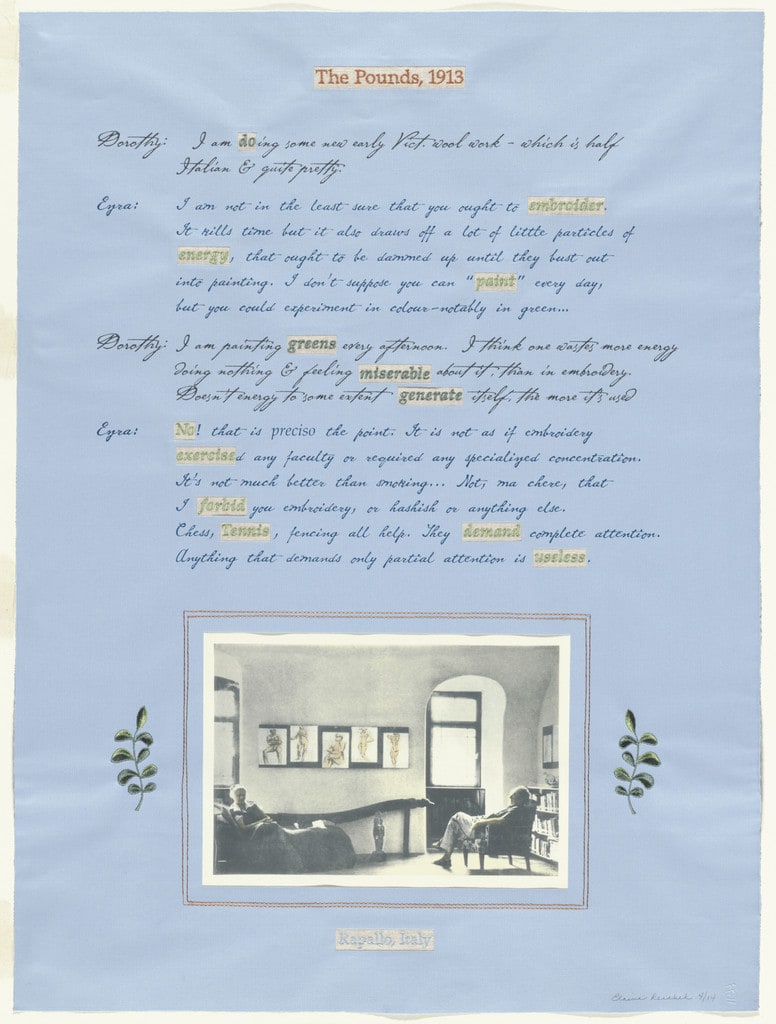 The Pounds, 1913
Dorothy: I am doing some new early Vict. wool work - which is half
Italian & quite pretty.
Ezra: I am not in the least sure that you ought to embroider.
It kills time but it also draws off a lot of little particles of
energy, that ought to be dammed up until they bust out
into painting. I don't suppose you can "paint" every day,
but you could experiment in colour-notably in green...
Dorothy: I am painting greens every afternoon. I think one wastes more energy
doing nothing & feeling miserable about it, than in embroidery.
Doesn't energy to some extent generate itself, the more it's used
Ezra: No! that is preciso the point. It is not as if embroidery
exercised any faculty or required any specialized concentration.
It's not much better than smoking... Not, ma chere, that
I forbid you embroidery, or hashish or anything else.
Chess, Tennis, fencing all help. They demand complete attention.
Anything that demands only partial attention is useless.
Rapallo, Italy
Elaine Reichek 9/14